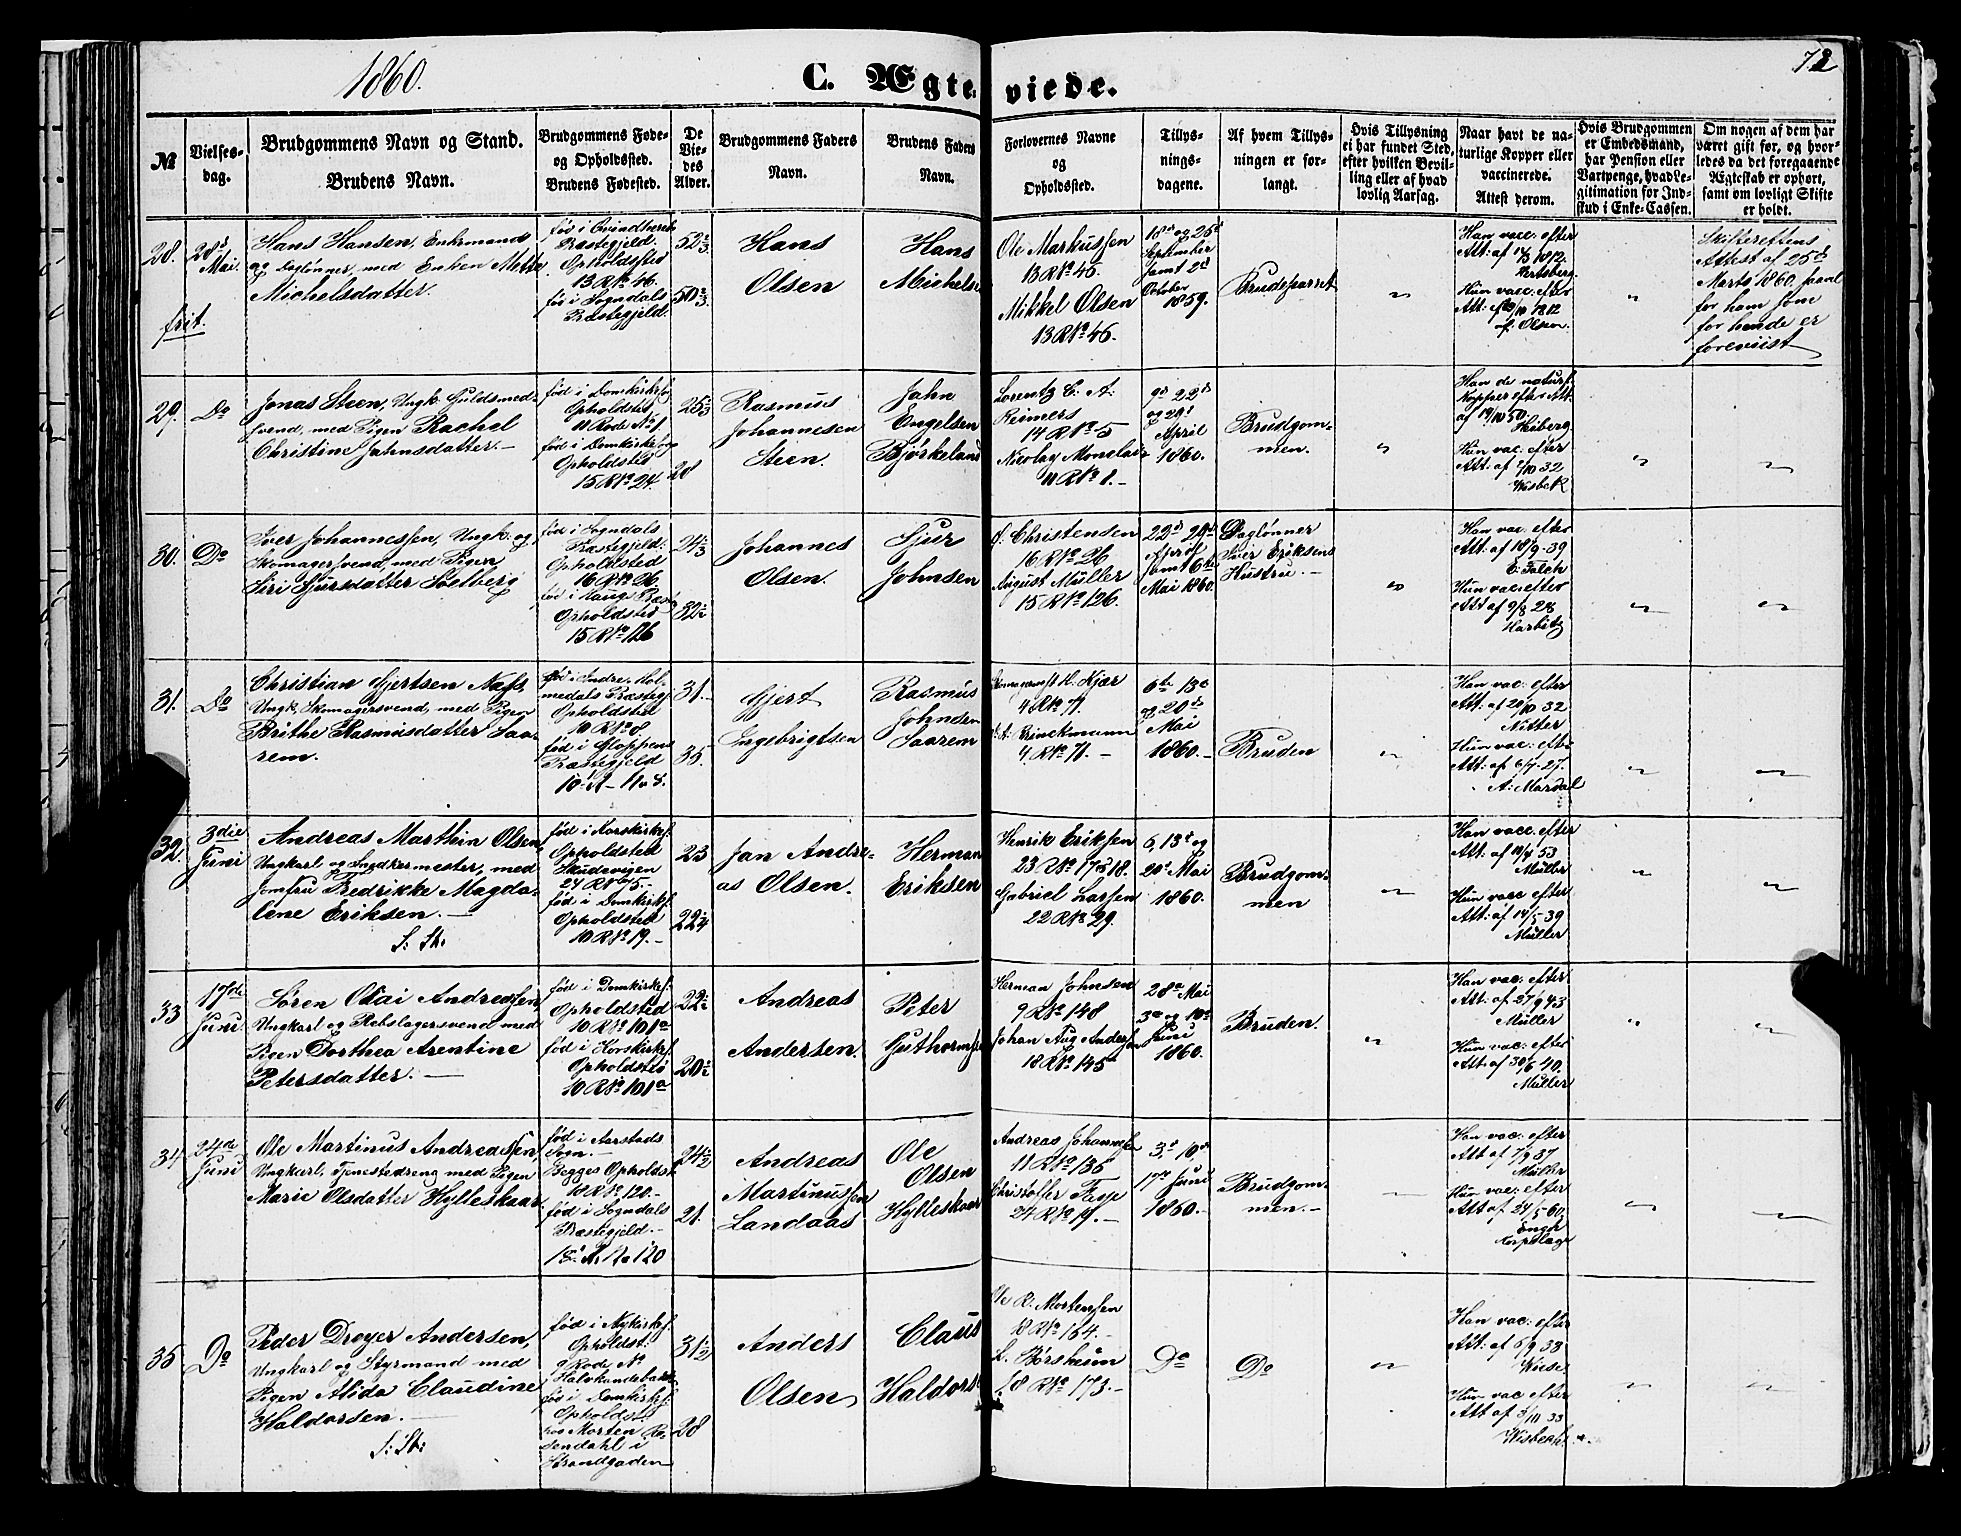 1860.
C. Ægteviede.
72
№
Vielsesdag.
Brudgommens Navn og Stand.
Brudens Navn.
Brudgommens Føde-
og Opholdssted.
Brudens Fødested.
De
Vie-
des
Alder.
Brudgommens Faders
Navn.
Brudens Faders
Navn.
Forlovernes Navne
og
Opholdssted.
Tillys-
nings-
dagene.
Af hvem Tillys-
ningen er for-
langt.
Hvis Tillysning
ei har fundet Sted,
efter hvilken Bevil-
ling eller af hvad
lovlig Aarsag.
Naar havt de na-
turlige Kopper eller
vaccinerede.
Attest derom.
Hvis Brudgommen
er Embedsmand,
har Pension eller
Vartpenge, hvad Le-
gitimation for Ind-
skud i Enke-Cassen.
Om nogen af dem har
været gift før, og hvor-
ledes da det foregaaende
Ægteskab er ophørt,
samt om lovligt Skifte
er holdt.
28.
frit.
28d
Mai.
Hans Hansen, Enkemand
og Daglønner, med Enken Mette
Michelsdatter.
fød i Qvindherreds
Præstegjeld.
Opholdssted
13 R No 46.
fød i Sogndals
Præstegjeld.
52 2/3
50 2/3
Hans
Olsen
Hans
Michelsen
Ole Markussen
13 R No 46.
Mikkel Olsen
13 R No 46.
18d og 25d
September
samt 2d
October
1859.
Brudeparret
"
Han vacc. efter
Att: af 14/3 1812.
Hertzberg.
Hun vacc. efter
Att: af 1812
af Olsen.
"
Skifterettens
Attest af 25d
Marts 1860 saavel
for ham som
for hende er
foreviist
29.
Do
Jonas Steen, Ungk. Guldsmed-
svend, med Pigen Rachel
Christine Jahnsdatter.-
fød i Domkirkes.
Opholdsted
11 Rode No 1.
fød i Domkirkesog
Opholdsted
15 R No 24.
25 2/3
28
Rasmus
Johannesen
Steen.
Jahn
Engelsen
Bjørkeland
Lorentz C. A.
Reimers
14 R No 5
Nicolay Monclair
11 R No 1.-
9d 22d
og 29d
April
1860.
Brudgom-
men.
"
Han de naturl.
Kopper efter Att.
af 19/10 50.
Heiberg
Hun vac. efter
Att: af 1/10 32
Wisbek
"
"
30.
Do
Iver Johannessen, Ungk. og
Skomagersvend, med Pigen
Siri Sjursdatter Solberg
fød i Sogndals
Præstegjeld.
Opholdsted
16 R No 26.
fød i Haugs Præst
Opholdsted
15 R No 126
24 2/3
32 1/2
Johannes
Olsen.
Sjur
Johnsen
J. Christensen
16 R No 26
August Müller
15 R No 126.
22d 29d
April
samt 6te
Mai 1860.
Daglønner
Iver Eriksens
Hustru.-
"
Han vac. efter
Att: af 18/9-39
E. Falch
Hun vac. efter
Att af 9/8 28
Harbitz
"
"
31.
Do
Christian Gjertsen Næss,
Ungk. Skomagersvend, med Pigen
Brithe Rasmusdatter Saa-
rem.
fød i Indre Hol-
medals Præstegj.
Opholdsted
10 R No 8.
fød i Gloppens
Præstegjeld
10 R No 8.
31.
35.
Gjert
Ingebrigtsen
Rasmus
Johnsen
Saarem
H. Kjær
4 R No 71.
A. Brinckmann
4. R No 71.-
6te 13d
og 20de
Mai
1860.-
Bruden
"
Han vac: efter
Att: af 20/10 32
Nitter
Hun vac: efter
Att: af 6/7-27.
A: Mardal
"
"
32.
3die
Juni
Andreas Marthin Olsen
Ungkarl og Snedkermester, med
Jomfru Fredrikke Magda-
lene Eriksen.-
S. St.
fød i Korskirkes.
Opholdsted
Skudevigen
24 R No 5.-
fød i Domkirkes.
Opholdsted
10 R No 19.-
23
22 1/4
Jan Andre-
as Olsen.
Herman
Eriksen
Henrik Eriksen
23 R No 17 & 18.
Gabriel Larsen
22 R No 29.
6, 13d og
20d Mai
1860.
Brudgom-
men
"
Han vacc. efter
Att: af 14/4 53
Müller
Hun vacc efter
Att: af 14/5-39
Müller
"
"
33
17de
Juni
Søren Olai Andreassen,
Ungkarl og Rebslagersvend med
Pigen Dorthea Arentine
Petersdatter.-
fød i Domkirkes.
Opholdsted
10 R No 101a
fød i Korskirkes.
Opholdsted
10 R No 101a
22 1/2
20 1/2
Andreas
Andersen.
Peter
Guthormsen
Herman Johnsen
9 R No 148
Johan Aug Andersen
18 R No 145a
28d Mai
3d og 10d
Juni
1860.
Bruden.
"
Han vac. efter
Att: af 27/9 43
Müller
Hun vac. efter
Att: af 30/6 40.
Müller
"
"
34
24de
Juni
Ole Martinus Andreassen,
Ungkarl, Tjenestedreng med Pigen
Marie Olsdatter Hylleskaar
fød i Aarstads
Sogn.-
Begges Opholdst.
18 R No 120.-
fød i Sogndals
Præstegjeld.-
18 R. No 120
24 1/2
21.
Andreas
Martinussen
Landaas
Ole
Olsen
Hylleskaar
Andreas Johannessen
11 R No 136
Christoffer Fasp
24 R No 19.-
3d 10d
17d Juni
1860.-
Brudgom-
men.-
"
Han vac: efter
Att af 7/9 37
Müller
Hun vac: efter
Att af 24/5-60
Engh
Korpslæge
"
"
35
Do
Peder Dreyer Andersen,
Ungkarl og Styrmand med
Pigen Alida Claudine
Haldorsen.-
S: St:
fød i Nykirkes.
Opholdst:
9 Rode No
i Halvkandebakke
fød i Domkirkes.
Opholdst.
hos Morten Ro-
sendahl i
Strandgaden
31 1/2
28
Anders
Olsen
Claus
Haldorsen
Ole R. Mortensen
18 R No 164.-
L. Børsheim
18 R No 173.-
Do
Do
"
Han vac: efter
Att: af 6/9 33
Wiese
Hun vac efter
Att af 5/10 33
Wisbech
"
"